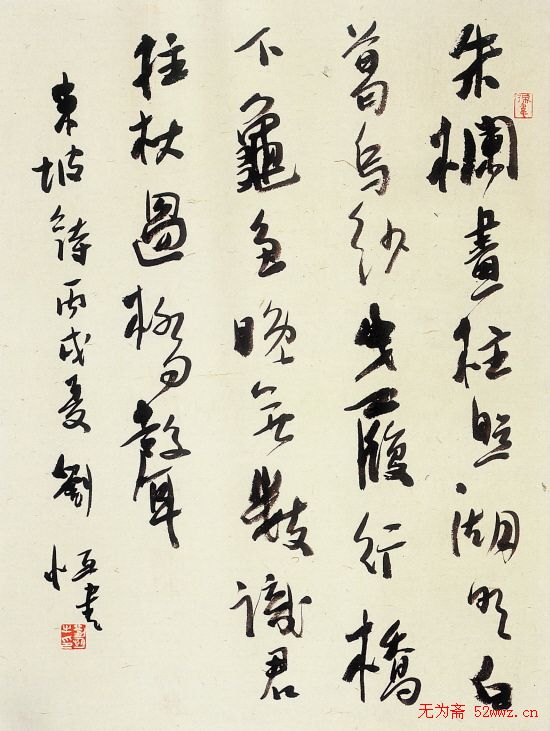 朱欄畫柱照湖明白
葛烏紗曳履行橋
下龜魚晚無數識君
拄杖過橋聲
東坡詩丙戌夏劉恒書
无为斋 52wwz.cn